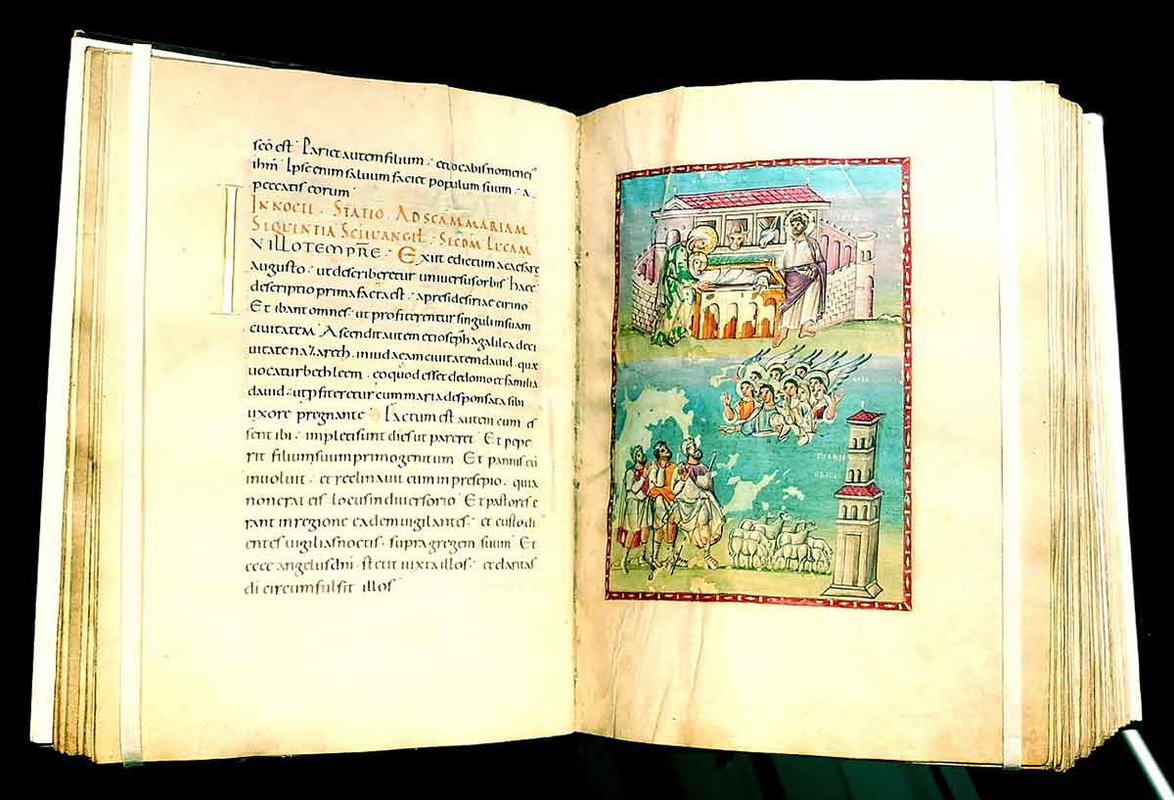 scō est · Pariet autem filium · et vocabis nomen eius
ihm · Ipse enim salvum faciet populum suum · a
peccatis eorum
IN NOCTE · STATIO · AD SCAM MARIAM
SEQUENTIA SCI EVANGEL · SECDM LUCAM
IN ILLO TEMPRE · Exiit edictum a caesare
augusto · ut describeretur universus orbis · haec
descriptio prima facta est · a preside siriae cirino
Et ibant omnes · ut profiterentur singuli in suam
civitatem · Ascendit autem et ioseph a galilea de ci
vitate nazareth · in iudaeam civitatem david · quae
vocatur bethleem · eo quod esset de domo et familia
david · ut pfiteretur cum maria desponsata sibi
uxore pregnante · Factum est autem cum es
sent ibi · impleti sunt dies ut pareret · Et pepe
rit filium suum primogenitum · Et pannis eū
involuit · et reclinavit eum in presepio · quia
non erat eis locus in diversorio · Et pastores e
rant in regione eadem vigilantes · et custodi
entes vigilias noctis · supra gregem suum · Et
ecce angelus dni · stetit iuxta illos · et claritas
di circumfulsit illos